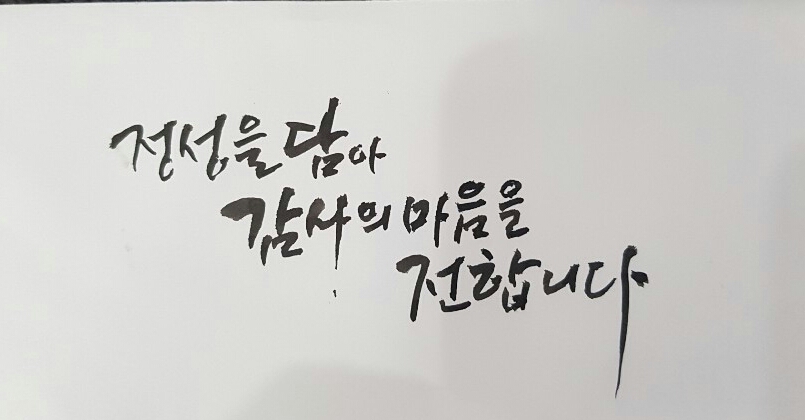 정성을 담아
감사의 마음을
전합니다